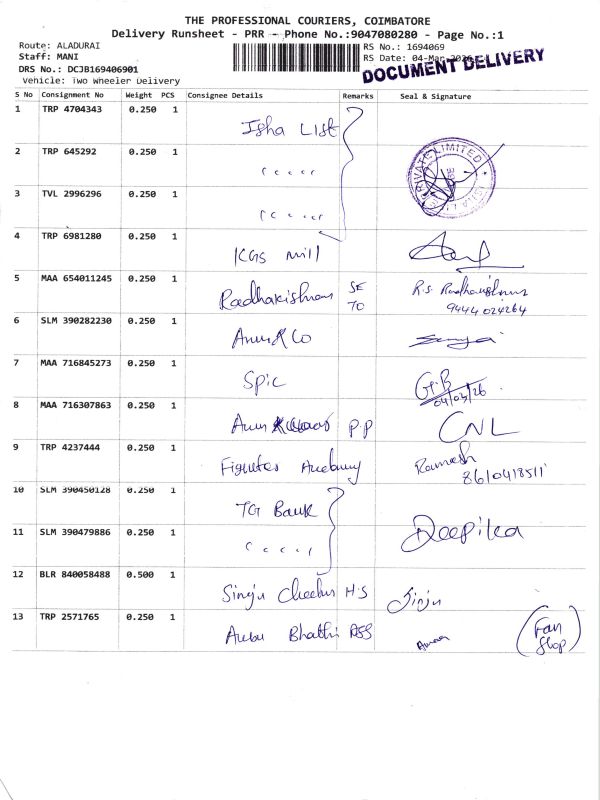 THE PROFESSIONAL COURIERS, COIMBATORE
Delivery Runsheet - PRR - Phone No.:9047080280 - Page No.:1
Route: ALADURAI
Staff: MANI
DRS No.: DCJB169406901
Vehicle: Two Wheeler Delivery
RS No.: 1694069
RS Date: 04-Mar-2026
DOCUMENT DELIVERY
S No Consignment No Weight PCS Consignee Details Remarks Seal & Signature
1 TRP 4704343 0.250 1 Isha List
2 TRP 645292 0.250 1
PRIVATE LIMITED
3 TVL 2996296 0.250 1
4 TRP 6981280 0.250 1 KGS mill
5 MAA 654011245 0.250 1 Radhakishnan SE TO R.S. Radhakishnan
9444024264
6 SLM 390282230 0.250 1 Arun & Co
7 MAA 716845273 0.250 1 Spic G.B
04/03/26
8 MAA 716307863 0.250 1 Arun P.P CNL
9 TRP 4237444 0.250 1 Ramesh
8610418511
10 SLM 390450128 0.250 1 TG Bank
11 SLM 390479886 0.250 1 Deepika
12 BLR 840058488 0.500 1 Sinju H.S Sinju
13 TRP 2571765 0.250 1 Anbu Bhathi
(Fan
Shop)